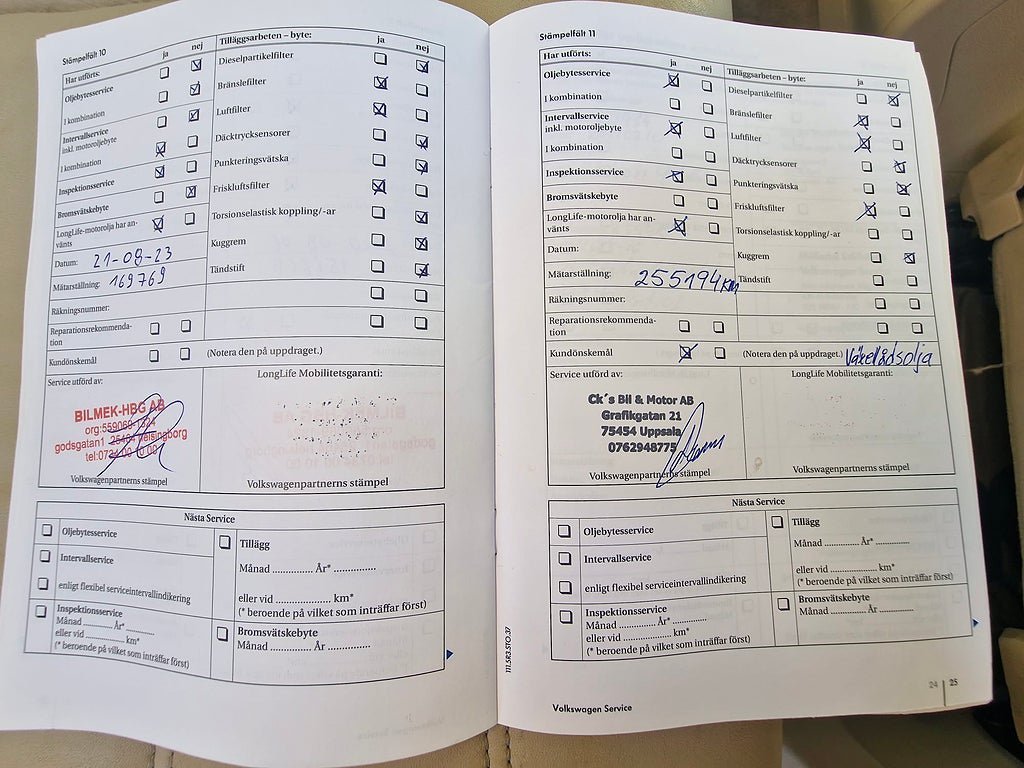 Stämpelfält 10
Har utförts: ja nej
Oljebytesservice
I kombination
Intervallservice
inkl. motoroljebyte
I kombination
Inspektionsservice
Bromsvätskebyte
LongLife-motorolja har an-
vänts
Datum: 21-08-23
Mätarställning: 169769
Räkningsnummer:
Reparationsrekommenda-
tion
Kundönskemål (Notera den på uppdraget.)
Tilläggsarbeten – byte: ja nej
Dieselpartikelfilter
Bränslefilter
Luftfilter
Däcktrycksensorer
Punkteringsvätska
Friskluftsfilter
Torsionselastisk koppling/-ar
Kuggrem
Tändstift
Service utförd av:
BILMEK-HBG AB
org:559069-1324
godsgatan1 25464 helsingborg
Volkswagenpartnerns stämpel
LongLife Mobilitetsgaranti:
Volkswagenpartnerns stämpel
Nästa Service
Oljebytesservice
Intervallservice
enligt flexibel serviceintervallindikering
Inspektionsservice
Månad .............. År* ..............
eller vid .................... km*
(* beroende på vilket som inträffar först)
Tillägg
Månad .............. År* ..............
eller vid .................... km*
(* beroende på vilket som inträffar först)
Bromsvätskebyte
Månad .............. År ..............
Stämpelfält 11
Har utförts: ja nej
Oljebytesservice
I kombination
Intervallservice
inkl. motoroljebyte
I kombination
Inspektionsservice
Bromsvätskebyte
LongLife-motorolja har an-
vänts
Datum:
Mätarställning: 255194km
Räkningsnummer:
Reparationsrekommenda-
tion
Kundönskemål (Notera den på uppdraget.) Växellådsolja
Tilläggsarbeten – byte: ja nej
Dieselpartikelfilter
Bränslefilter
Luftfilter
Däcktrycksensorer
Punkteringsvätska
Friskluftsfilter
Torsionselastisk koppling/-ar
Kuggrem
Tändstift
Service utförd av:
Ck´s Bil & Motor AB
Grafikgatan 21
75454 Uppsala
0762948775
Volkswagenpartnerns stämpel
LongLife Mobilitetsgaranti:
Volkswagenpartnerns stämpel
Nästa Service
Oljebytesservice
Intervallservice
enligt flexibel serviceintervallindikering
Inspektionsservice
Månad .............. År* ..............
eller vid .................... km*
(* beroende på vilket som inträffar först)
Tillägg
Månad .............. År* ..............
eller vid .................... km*
(* beroende på vilket som inträffar först)
Bromsvätskebyte
Månad .............. År ..............
111.5R3.STO.37
Volkswagen Service
24 25